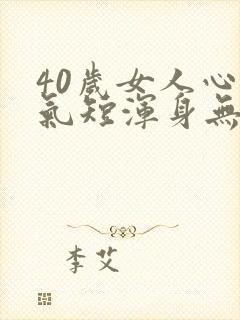 40歲女人心
氣短渾身無
李艾